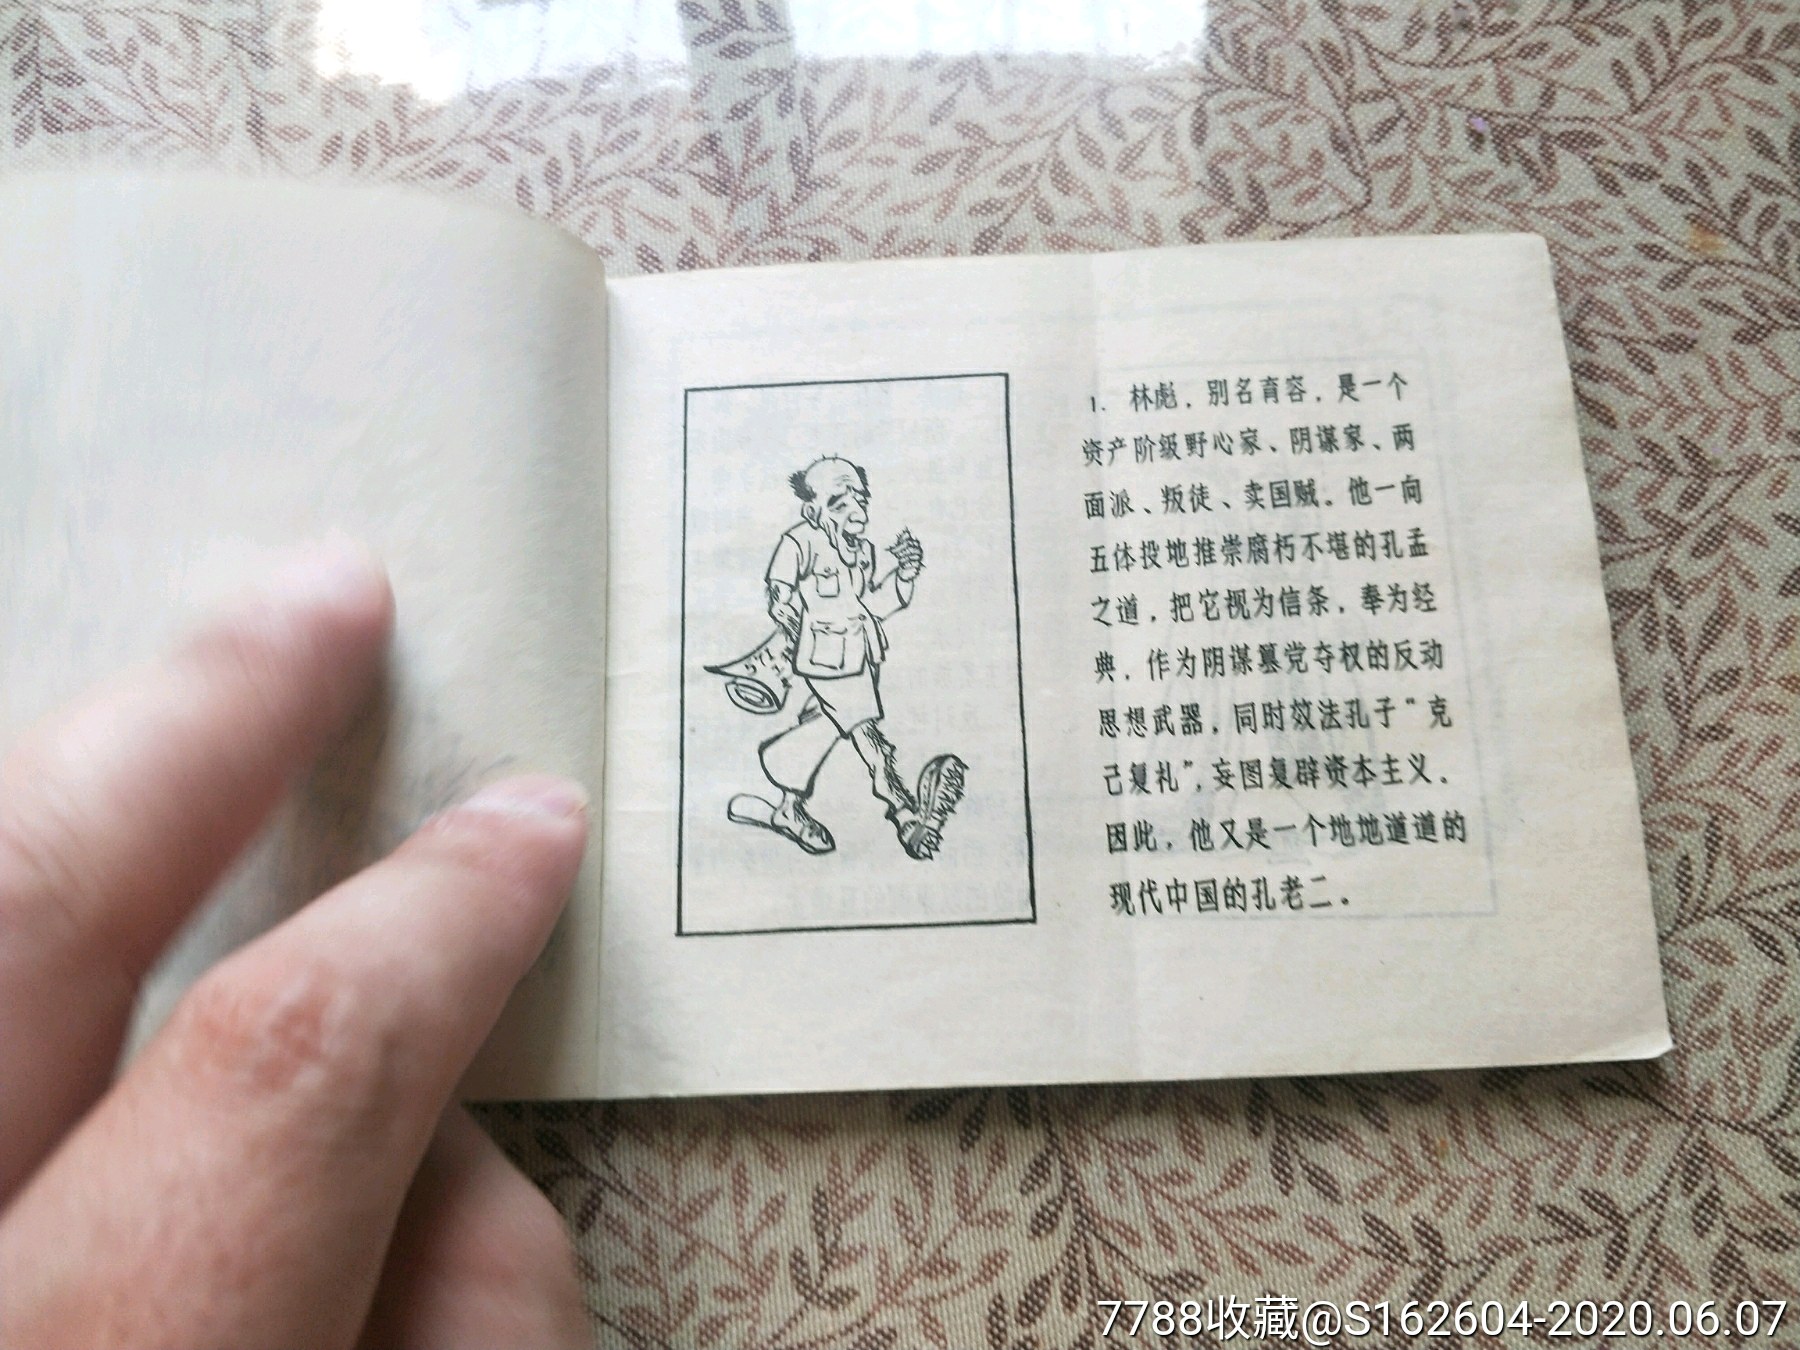 1. 林彪，别名育容，是一个
资产阶级野心家、阴谋家、两
面派、叛徒、卖国贼。他一向
五体投地推崇腐朽不堪的孔孟
之道，把它视为信条，奉为经
典，作为阴谋篡党夺权的反动
思想武器，同时效法孔子“克
己复礼”，妄图复辟资本主义。
因此，他又是一个地地道道的
现代中国的孔老二。
7788收藏@S162604-2020.06.07